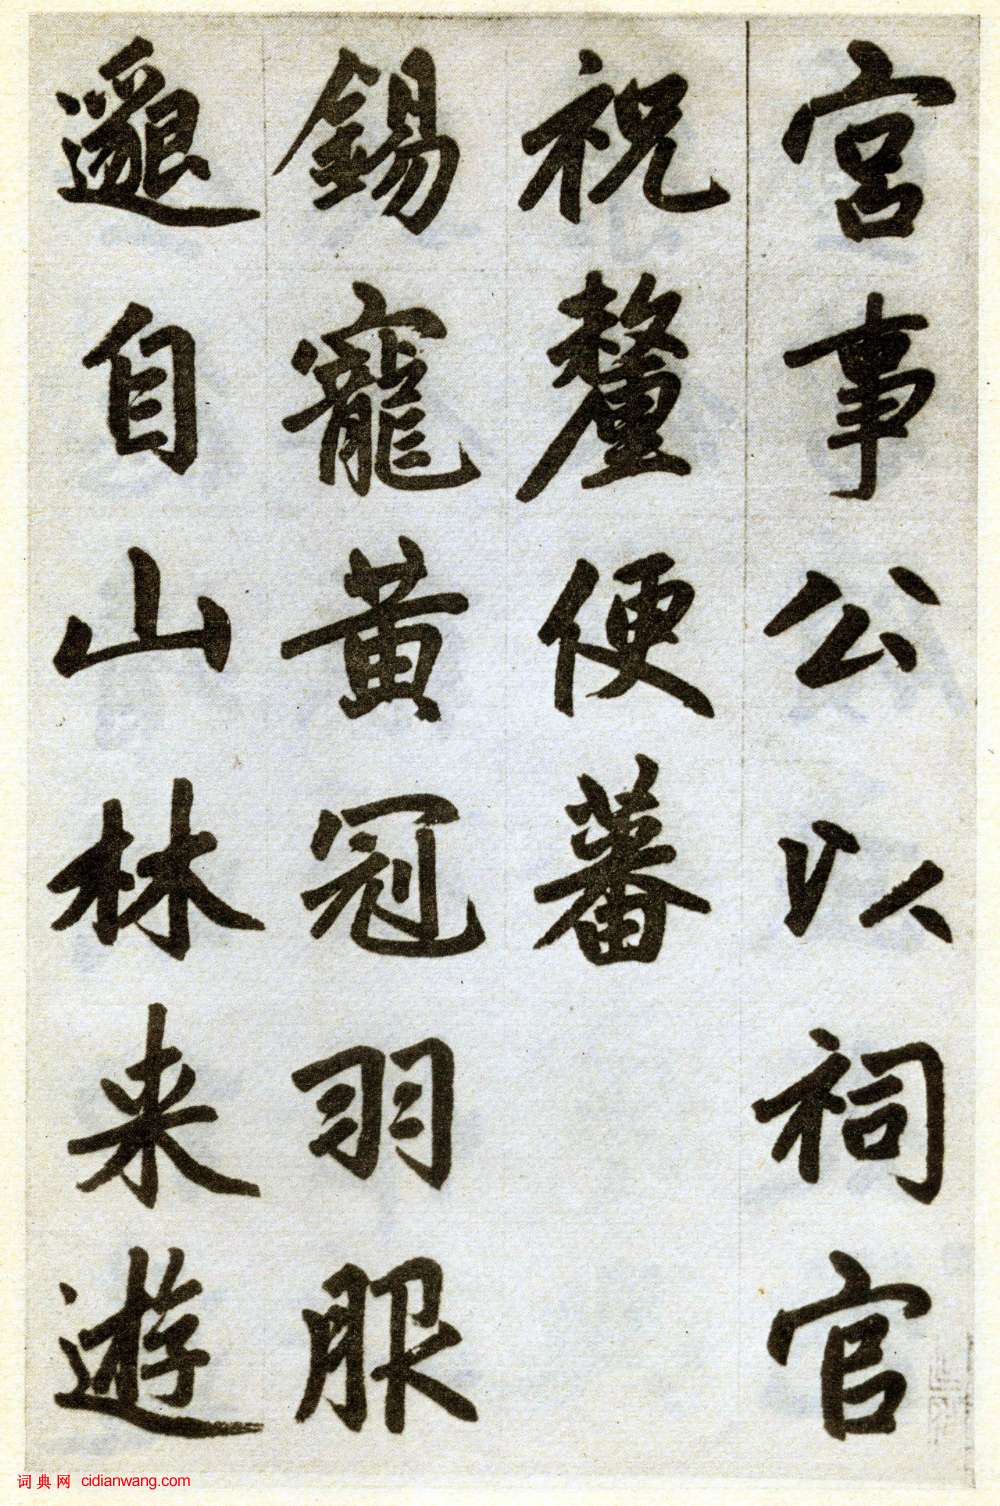 宮事公以祠官
祝釐便蕃
錫寵黃冠羽服
邈自山林来遊
词典网 cidianwang.com